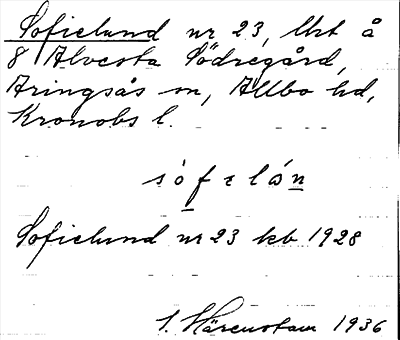 Sofielund nr 23, lht å
8 Alvesta Södregård,
Aringsås sn, Allbo hd,
Kronobs l.
sòfɛlón
Sofielund nr 23 kb 1928
I. Härenstam 1936